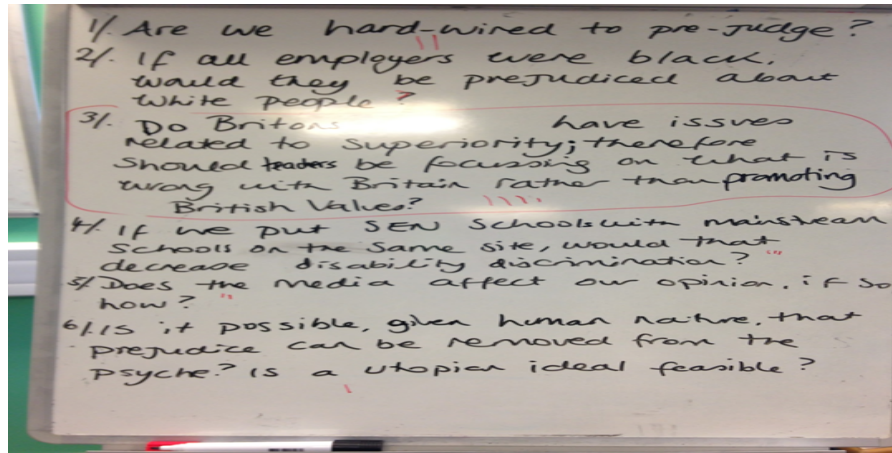 1/. Are we hard-wired to pre-judge?
2/. If all employers were black,
would they be prejudiced about
white people?
3/. Do Britons have issues
related to superiority; therefore
should teachers be focussing on what is
wrong with Britain rather than promoting
British Values?
4/. If we put SEN schools with mainstream
schools on the same site, would that
decrease disability discrimination?
5/ Does the media affect our opinion, if so
how?
6/. Is it possible, given human nature, that
prejudice can be removed from the
psyche? Is a utopian ideal feasible?